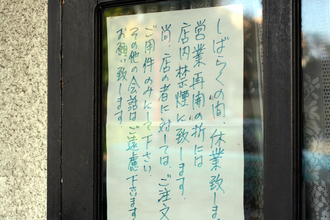 しばらくの間、休業致しま
営業再開の折には
店内禁煙に致します。
尚、店の者に対しては、ご注文
ご用件のみにして下さい
その他の会話はご遠慮下さいます
お願い致します